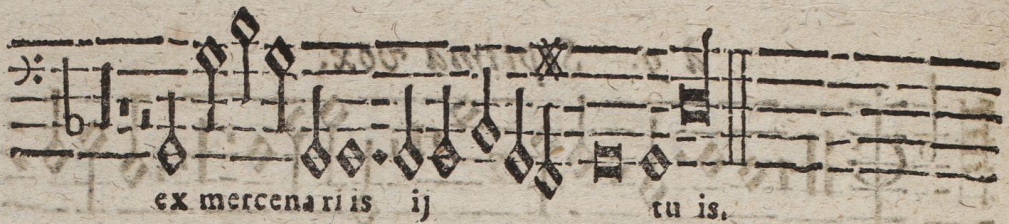 ex mercenariis ij tu is.